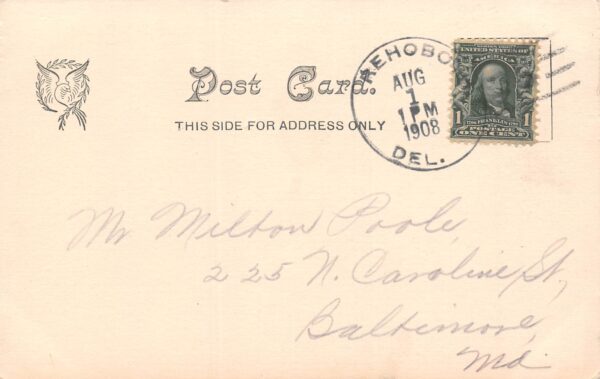 Post Card.
THIS SIDE FOR ADDRESS ONLY
REHOBO
AUG
1
1 PM
1908
DEL.
UNITED STATES OF
AMERICA
FRANKLIN
1 POSTAGE 1
ONE CENT
Mr Milton Poole,
225 N. Caroline St,
Baltimore,
Md.